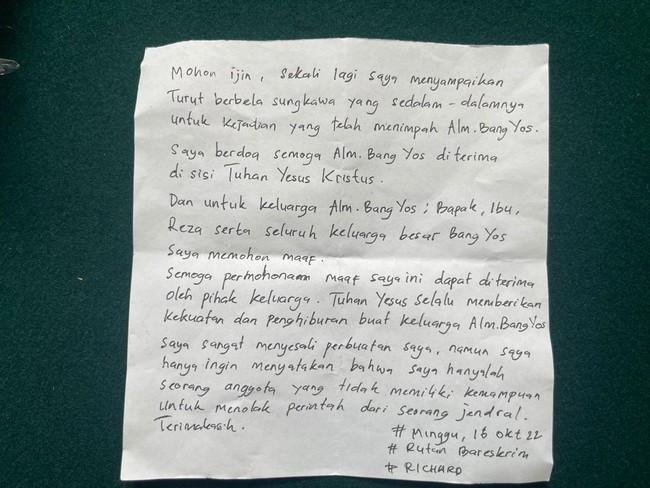 Mohon ijin, sekali lagi saya menyampaikan
Turut berbela sungkawa yang sedalam-dalamnya
untuk kejadian yang telah menimpah Alm. Bang Yos.
Saya berdoa semoga Alm. Bang Yos diterima
di sisi Tuhan Yesus Kristus.
Dan untuk keluarga Alm. Bang Yos; Bapak, Ibu,
Reza serta seluruh keluarga besar Bang Yos
Saya memohon maaf.
Semoga permohonaan maaf saya ini dapat diterima
oleh pihak keluarga. Tuhan Yesus selalu memberikan
kekuatan dan penghiburan buat keluarga Alm. Bang Yos
Saya sangat menyesali perbuatan saya, namun saya
hanya ingin menyatakan bahwa saya hanyalah
seorang anggota yang tidak memiliki kemampuan
untuk menolak perintah dari seorang jendral.
Terimakasih.
# Minggu, 16 okt 22
# Rutan Bareskrim
# RICHARD